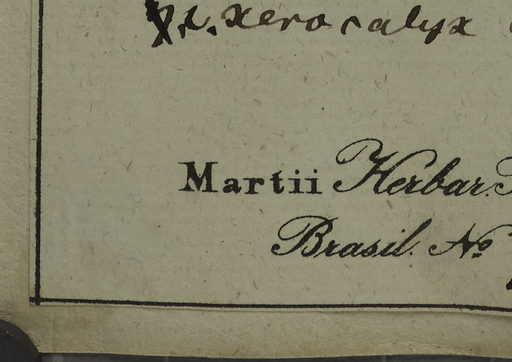 xerocalyx
Martii Herbar.
Brasil. No